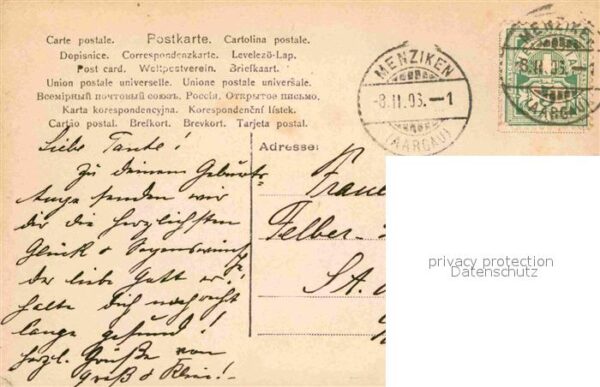 Carte postale. Postkarte. Cartolina postale.
Dopisnice. Correspondenzkarte. Levelező-Lap.
Post card. Weltpostverein. Briefkaart.
Union postale universelle. Unione postale universale.
Всемірный почтовый союзъ. Россія. Открытое письмо.
Karta korespondencyjna. Korespondenční lístek.
Cartão postal. Brefkort. Brevkort. Tarjeta postal.
MENZIKEN
-8.II.06.-1
(AARGAU)
MENZIKEN
-8.II.06.
(AARGAU)
Adresse:
Liebe Tante!
Zu deinem Geburts-
tage senden wir
dir die herzlichsten
Glück & Segenswünsche
der liebe Gott er-
halte dich noch recht
lange gesund!
herzl. Grüße von
groß & Klein!
Frau
Felber-
St.
privacy protection
Datenschutz